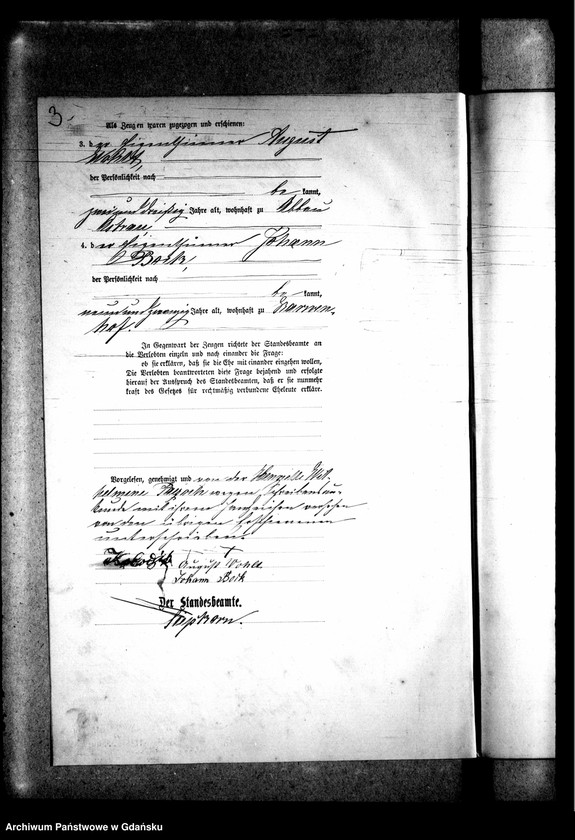 3.
Als Zeugen waren zugezogen und erschienen:
3. der Eigenthümer August
der Persönlichkeit nach
be kannt,
zweiunddreißig Jahre alt, wohnhaft zu Abbau
4. der Eigenthümer Johann
Bock,
der Persönlichkeit nach
be kannt,
neunundzwanzig Jahre alt, wohnhaft zu
hof.
In Gegenwart der Zeugen richtete der Standesbeamte an
die Verlobten einzeln und nach einander die Frage:
ob sie erklären, daß sie die Ehe mit einander eingehen wollen,
Die Verlobten beantworteten diese Frage bejahend und erfolgte
hierauf der Ausspruch des Standesbeamten, daß er sie nunmehr
kraft des Gesetzes für rechtmäßig verbundene Eheleute erkläre.
Vorgelesen, genehmigt und von der Wil-
helmine wegen Schreibensun-
kunde mit ihrem Handzeichen versehen
von den übrigen Erschienenen
unterschrieben
August
Johann Bock
Der Standesbeamte.
Archiwum Państwowe w Gdańsku